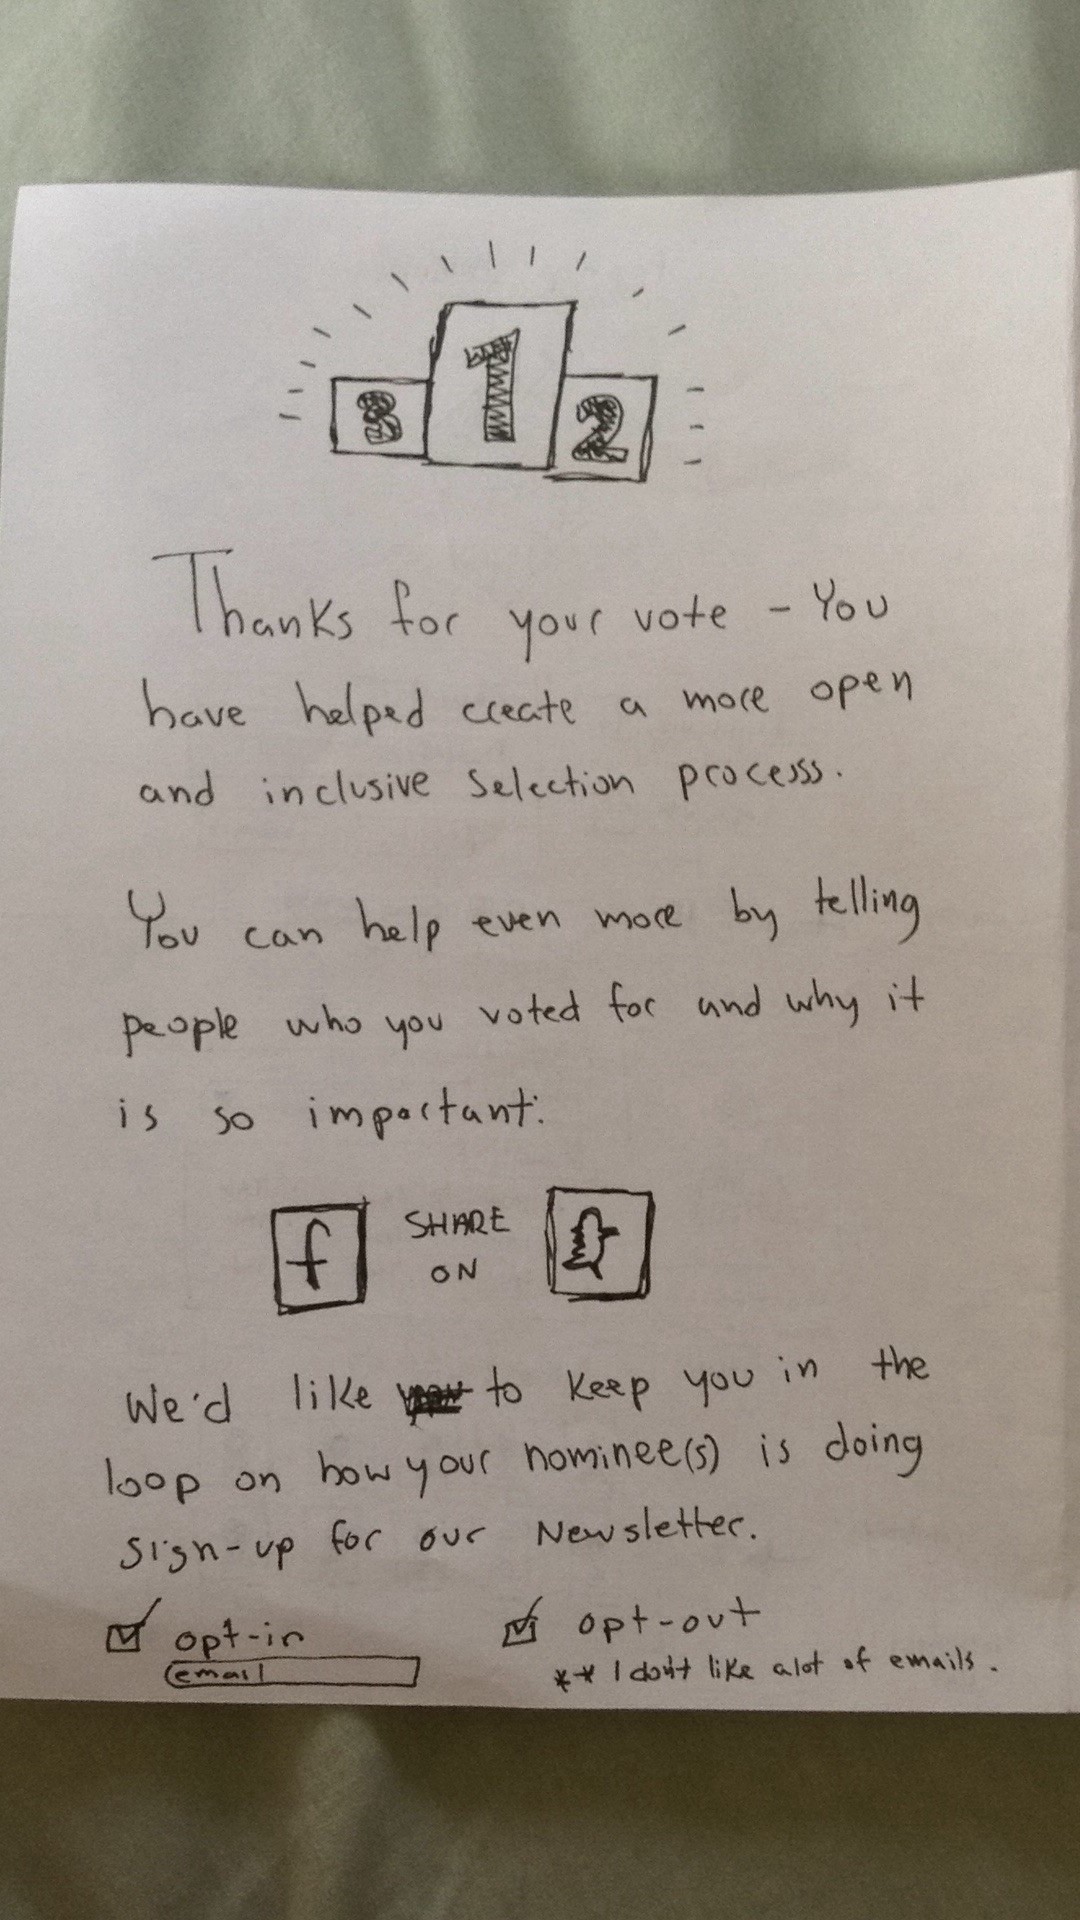 3 1 2
Thanks for your vote - You
have helped create a more open
and inclusive selection processs.
You can help even more by telling
people who you voted for and why it
is so important:
f SHARE
ON
We'd like to keep you in the
loop on how your nominee(s) is doing
sign-up for our Newsletter.
opt-in opt-out
email ** I don't like alot of emails.